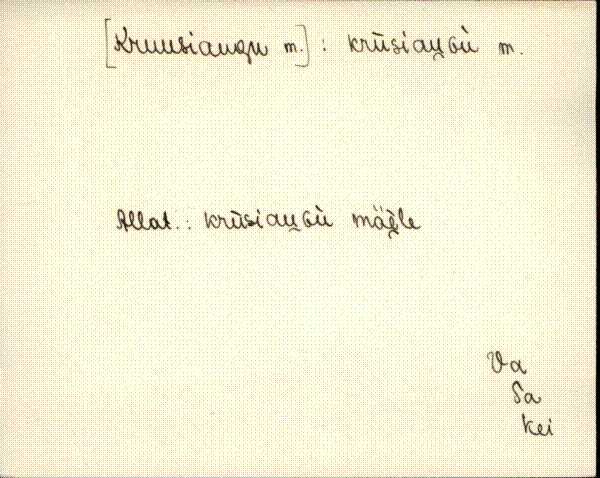 [Kruusiaugu m.] : krūsiau̯Gù m.
Allat. : krūsiau̯Gù mäѐ̯le
Va
Sa
kei